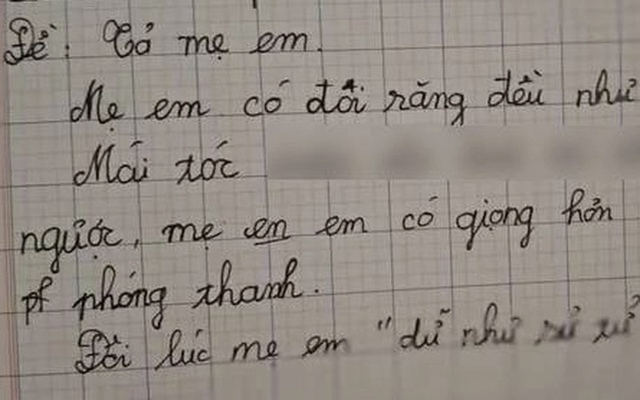 Đề: Tả mẹ em.
Mẹ em có đôi răng đều như
Mái tóc
người, mẹ en em có giọng hơn
pf phóng thanh.
Đôi lúc mẹ em "dữ như